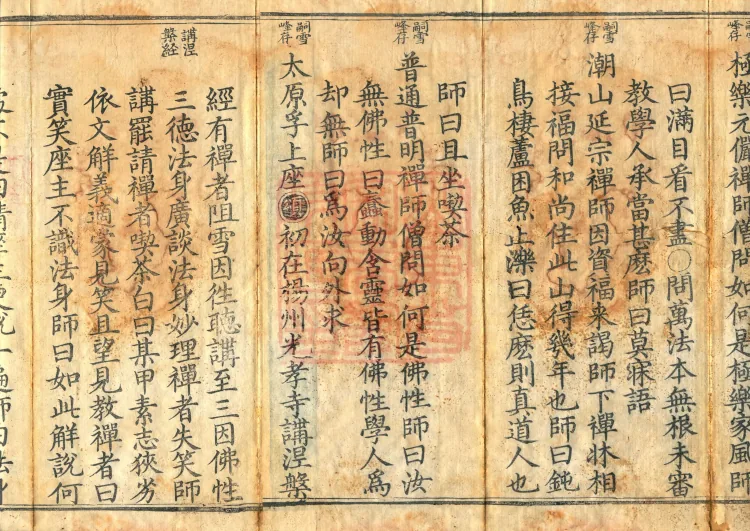 峰存
極樂元儼禪師僧問如何是極樂家風師
曰滿目看不盡○問萬法本無根未審
教學人承當甚麽師曰莫寐語
嗣雪
峰存
潮山延宗禪師因資福来謁師下禪牀相
接福問和尚住此山得幾年也師曰鈍
鳥棲蘆困魚止濼曰恁麽則真道人也
師曰且坐喫茶
嗣雪
峰存
普通普明禪師僧問如何是佛性師曰汝
無佛性曰蠢動含靈皆有佛性學人爲
却無師曰爲汝向外求
嗣雪
峰存
太原孚上座初在揚州光孝寺講涅槃
經有禪者阻雪因徃聴講至三因佛性
講涅
槃経
三徳法身廣談法身妙理禪者失笑師
講罷請禪者喫茶白曰某甲素志狹劣
依文解義適蒙見笑且望見教禪者曰
實笑座主不識法身師曰如此解說何